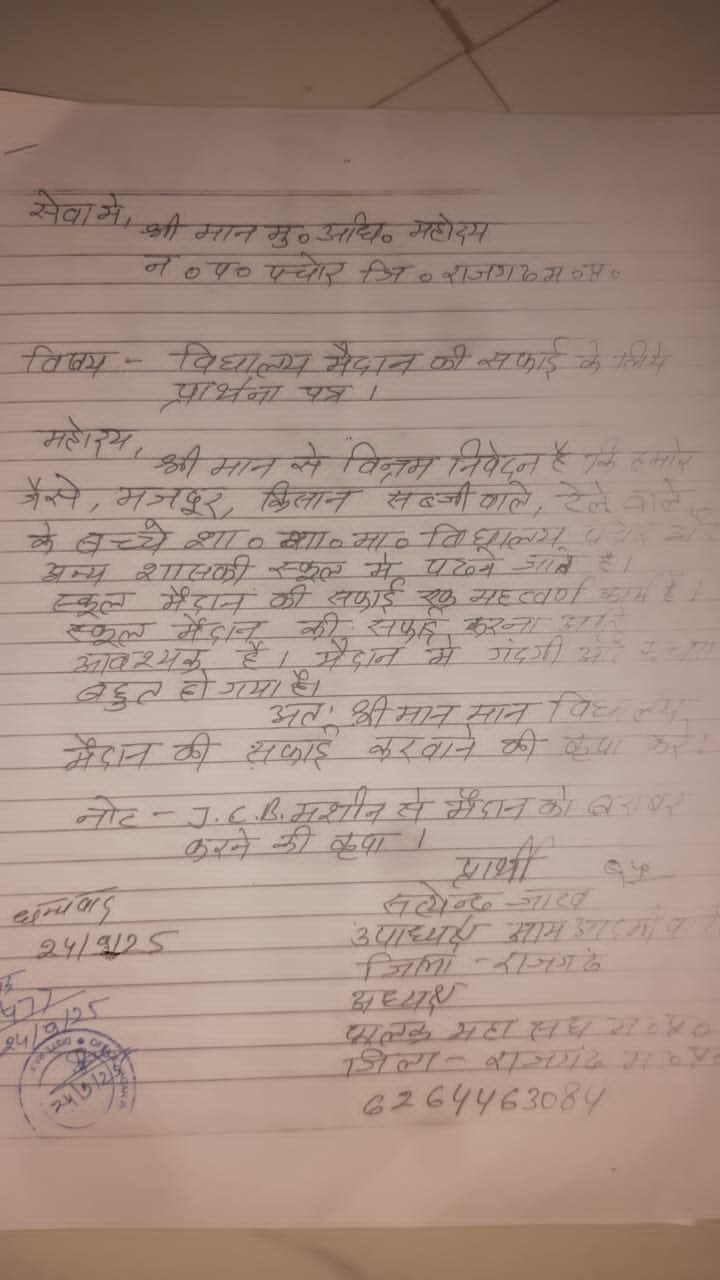 सेवा मे,
श्री मान मु० अधि० महोदय
न०प० पचोर जि० राजगढ म०प्र०
विषय - विद्यालय मैदान की सफाई के लिये
प्रार्थना पत्र ।
महोदय,
श्री मान से विनम्र निवेदन है कि हमारे
जैसे, मजदूर, किसान सब्जी वाले, ठेले वाले
के बच्चे शा० मा० विद्यालय
अन्य शासकी स्कूल मे पढने जाते है।
स्कूल मैदान की सफाई एक महत्वर्ण कार्य है।
स्कूल मैदान की सफाई करना अति
आवश्यक है। मैदान मे गंदगी और
बहुत हो गया है।
अतः श्री मान मान विद्यालय
मैदान की सफाई करवाने की कृपा करे।
नोट - J.C.B. मशीन से मैदान को बराबर
करने की कृपा ।
प्रार्थी
धन्यवाद
24/9/25
सत्येन्द्र जाटव
उपाध्यक्ष आम आदमी
जिला - राजगढ
अध्यक्ष
पालक महा संघ म०प्र०
जिला - राजगढ म०प्र०
6264463084
24/9/25
24/9/25